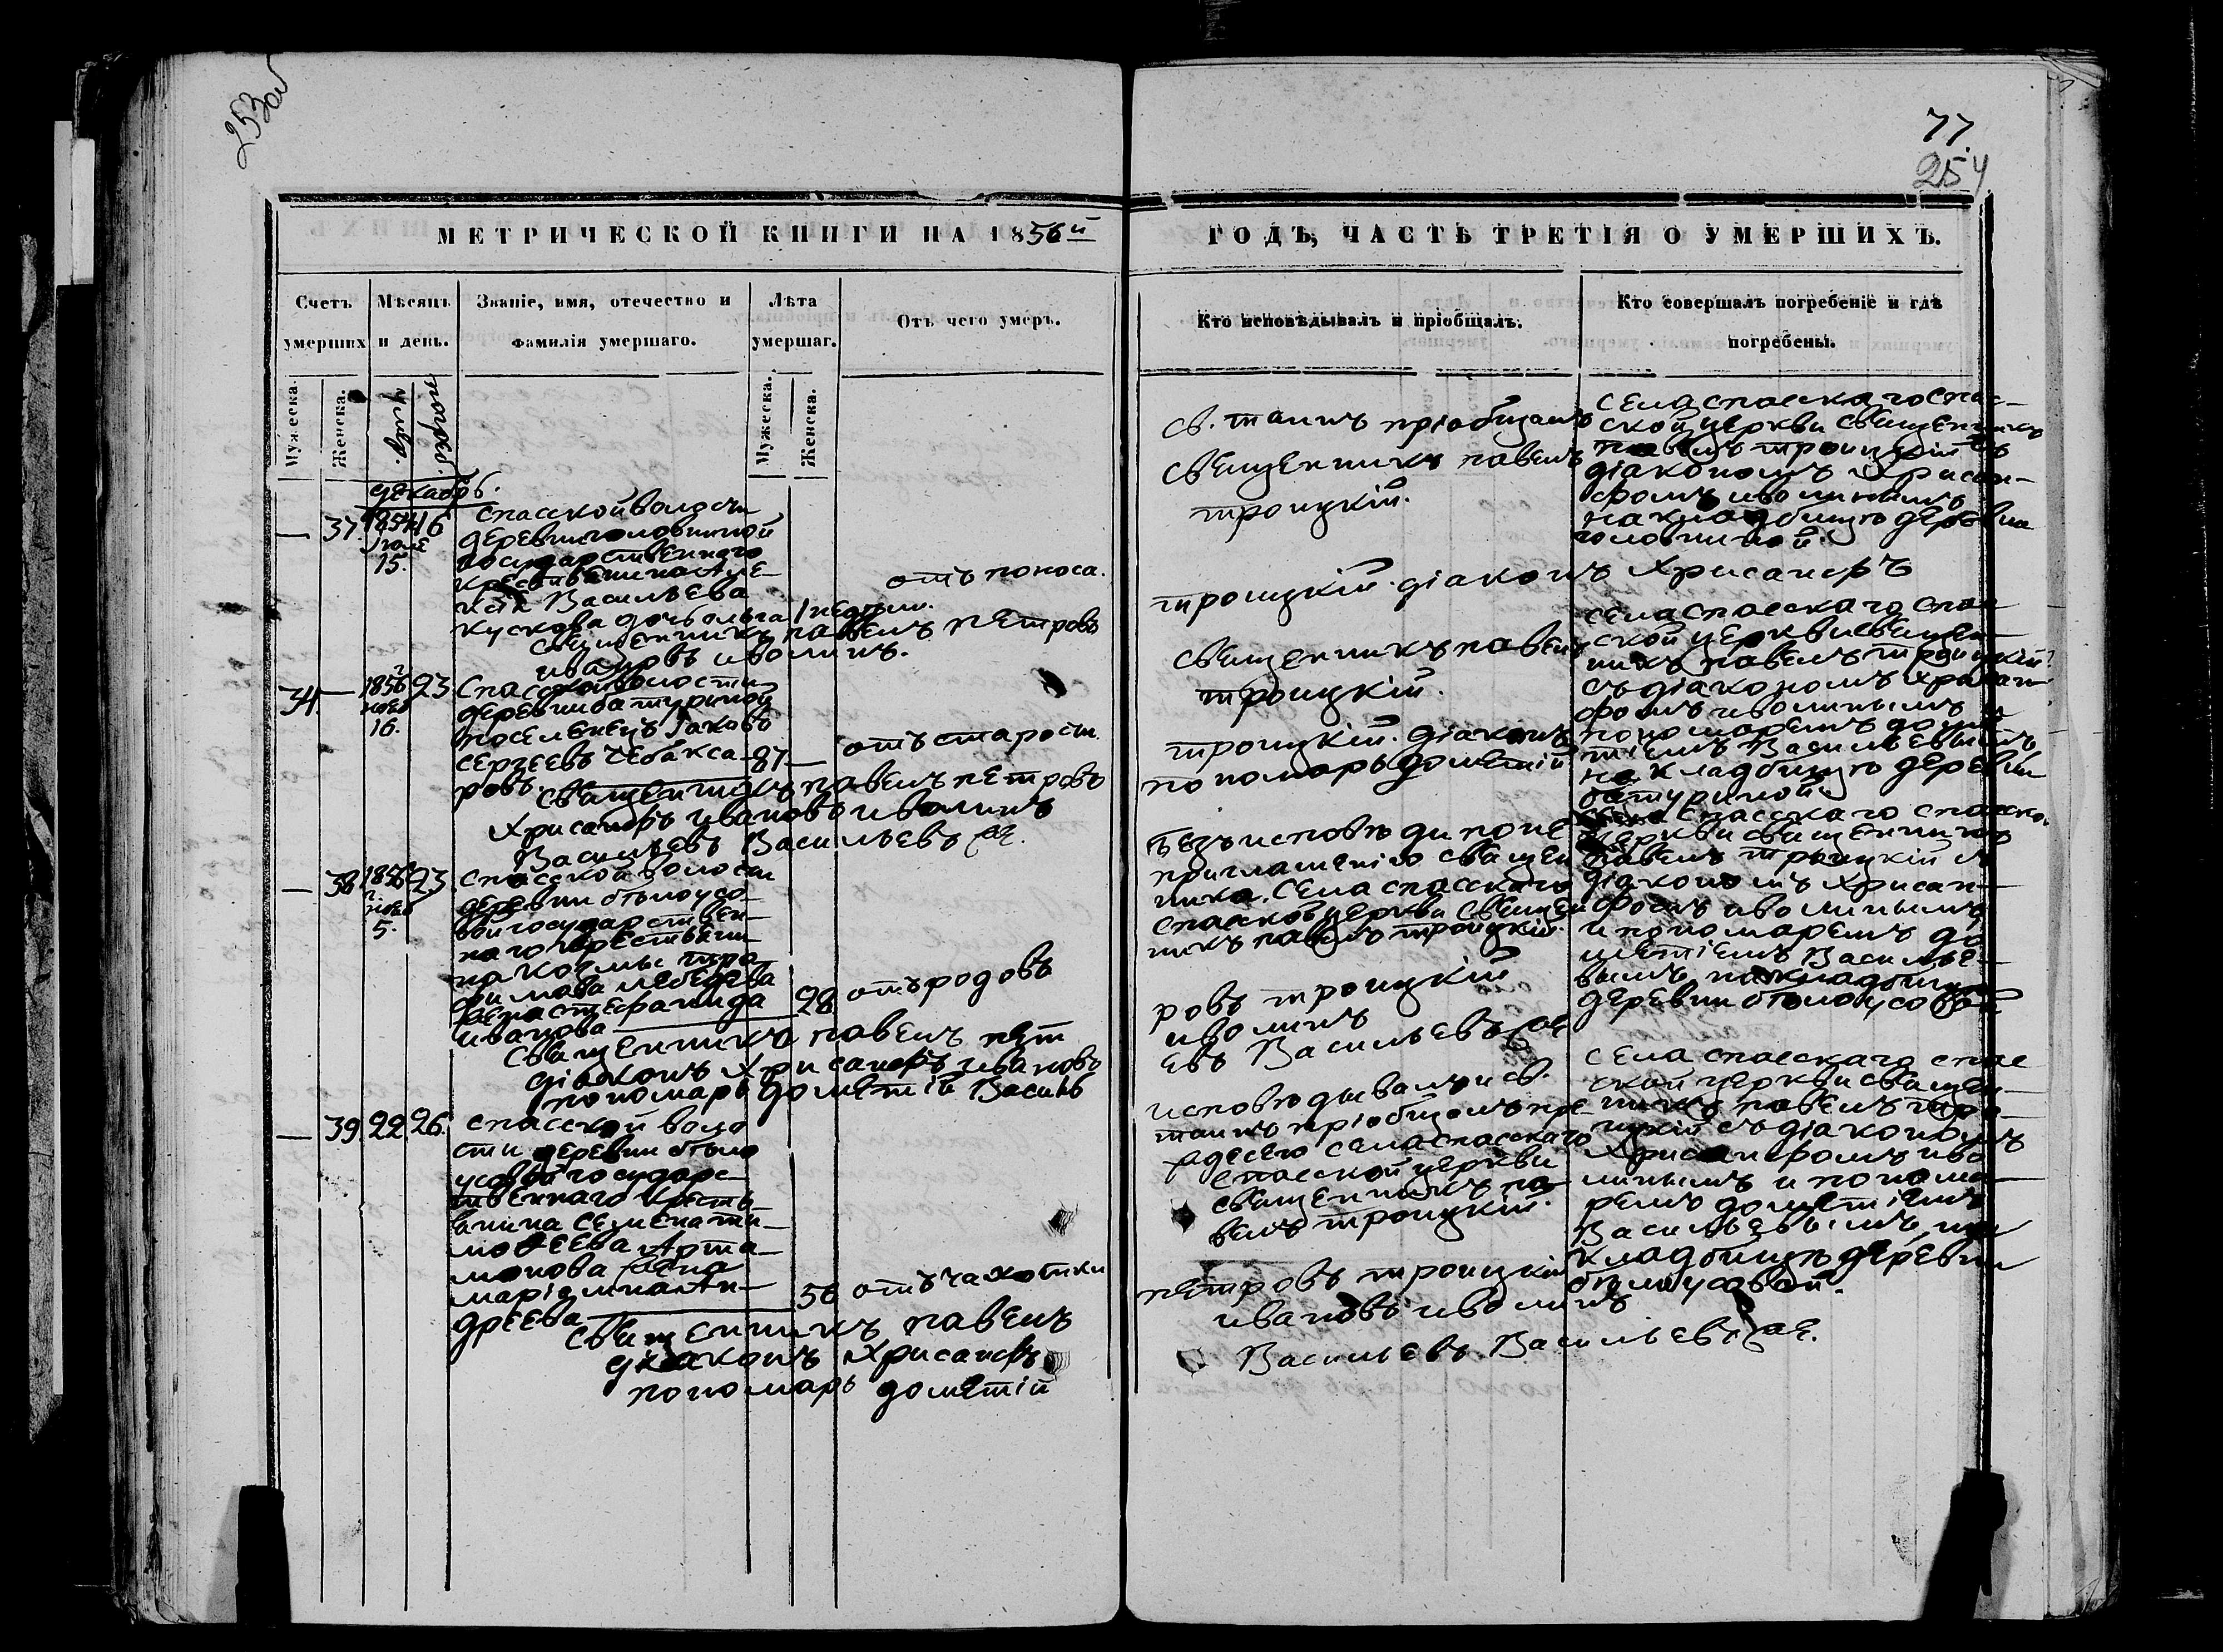 253об
77.
254
МЕТРИЧЕСКОЙ КНИГИ НА 1856й
ГОДЪ, ЧАСТЬ ТРЕТІЯ О УМЕРШИХЪ.
Счетъ умершихъ
Мѣсяцъ и день.
Званіе, имя, отечество и фамилія умершаго.
Лѣта умершаг.
Отъ чего умеръ.
Кто исповѣдывалъ и пріобщалъ.
Кто совершалъ погребеніе и гдѣ погребены.
Мужеска.
Женска.
умер.
погреб.
Мужеска.
Женска.
декабрь.
— 37. 16
15.
Спасской волости
деревни головиной
государственнаго
крестьянина Але-
ксѣя Васильева
кускова дочь ольга
отъ поноса.
священникъ павелъ петровъ
ивановъ иволинъ.
св. таинъ пріобщалъ
священникъ павелъ
троицкій.
троицкій. діаконъ Хрисанфъ
села спасскаго спас-
ской церкви священникъ
павелъ троицкій съ
діакономъ Хрисан-
фомъ иволинымъ
на кладбищѣ деревни
головиной.
34. — 1856 23
16.
Спасской волости
деревни батуриной
поселенецъ Іаковъ
сергѣевъ чебакса-
ровъ.
87 —
отъ старости.
священникъ павелъ петровъ
Хрисанфъ ивановъ иволинъ
Васильевъ Васильевъ
священникъ павелъ
троицкій.
троицкій. діаконъ
пономарь дометій
села спасскаго спас
ской церкви священ-
никъ павелъ троицкій
съ діакономъ хрисан-
фомъ иволинымъ и
пономаремъ доме-
тіемъ Васильевымъ,
на кладбищѣ деревни
батуриной
— 38 1856 23
5.
спасской волости
деревни бѣлоусо-
вой государствен-
наго крестьяни-
на Козмы тро
фимова лебедева
жена стефанида
иванова
28
отъ родовъ
священникъ павелъ пет
діаконъ Хрисанфъ ивановъ
пономарь дометій Василь
безъ исповѣди по не
приглашенію священ
ника. Села спасскаго
спасской церкви священ
никъ павелъ троицкій.
ровъ троицкій
иволинъ
евъ Васильевъ
спасскаго спасско
церкви священникъ
павелъ троицкій съ
діакономъ Хрисан-
фомъ иволинымъ
и пономаремъ до
метіемъ Василье-
вымъ, на кладбищѣ
деревни бѣлоусовой
— 39. 22. 26.
спасской воло
сти деревни бѣло
усовой государс-
твеннаго кресть-
янина семена ти-
моѳеева Арта-
монова жена
марія Ан-
дреева
56
отъ чахотки
священникъ павелъ
діаконъ Хрисанфъ
пономарь дометій
исповѣдывалъ и св.
таинъ пріобщалъ пре-
села спасскаго
спасской церкви
священникъ па-
велъ троицкій.
петровъ троицкій
ивановъ иволинъ
Васильевъ Васильевъ
села спасскаго спас
ской церкви священ-
никъ павелъ тро-
ицкій съ діакономъ
Хрисанфомъ иво
линымъ и понома-
ремъ дометіемъ
Васильевымъ, на
кладбищѣ деревни
бѣлоусовой.